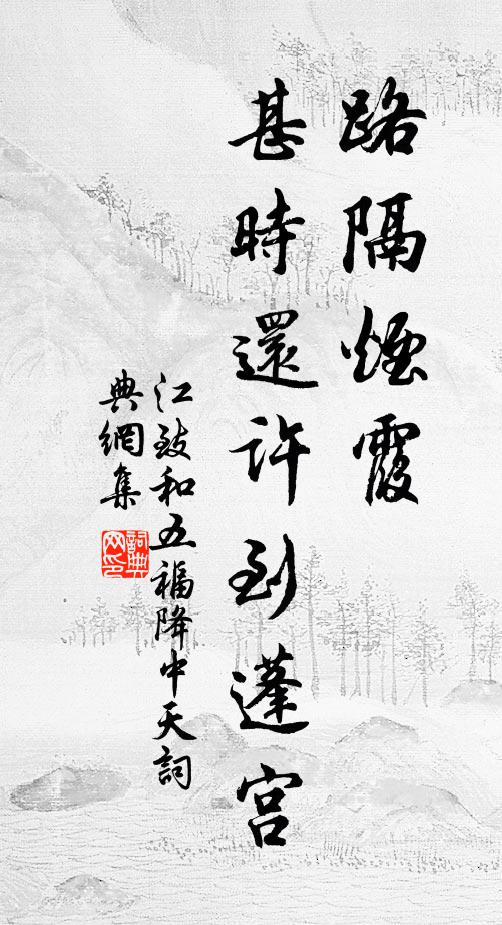 路隔煙霞
甚時還許到蓬宮
江致和五福降中天詞
典網集
詞典網印